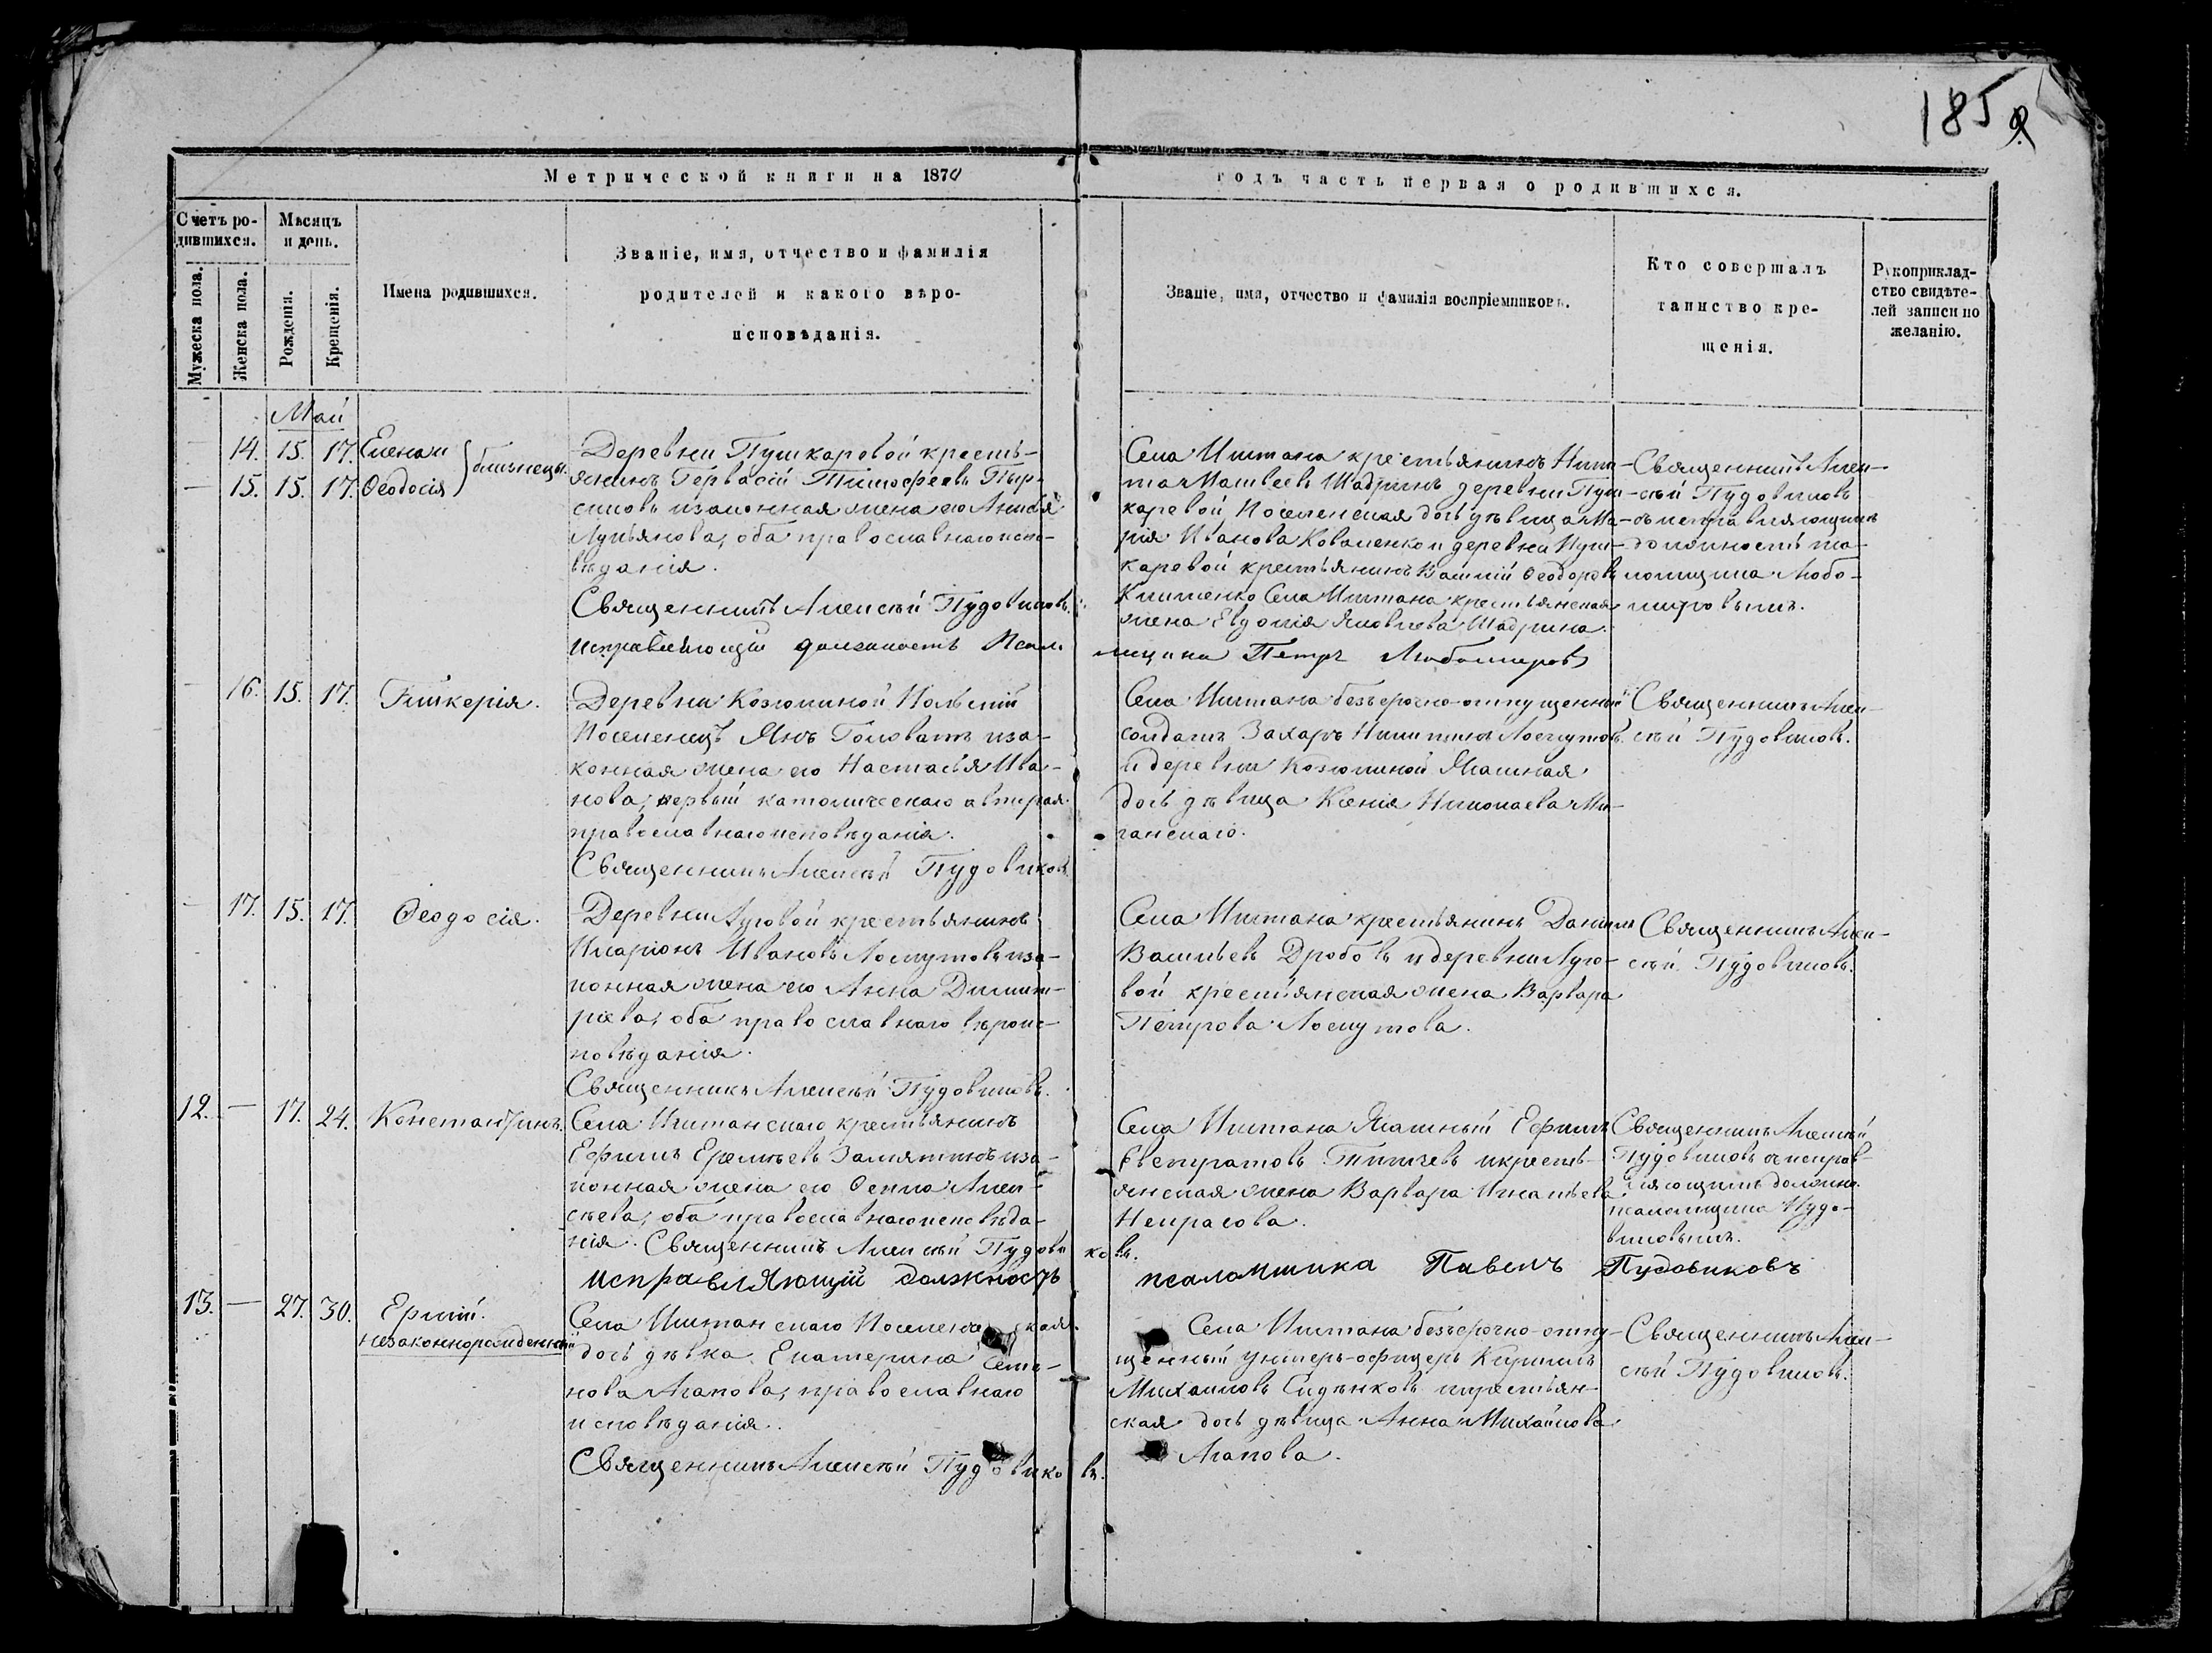 185
Метрической книги на 1870 годъ часть первая о родившихся.
Счетъ родившихся.
Мѣсяцъ и день.
Мужеска пола.
Женска пола.
Рожденія.
Крещенія.
Имена родившихся.
Званіе, имя, отчество и фамилія
родителей и какого вѣро-
исповѣданія.
Званіе, имя, отчество и фамилія воспріемниковъ.
Кто совершалъ
таинство кре-
щенія.
Рукоприклад-
ство свидѣте-
лей записи по
желанію.
Май
— 14. 15. 17. Елена и
— 15. 15. 17. Ѳеодосія } близнецы.
Деревни Пушкаровой кресть-
янинъ Гервасій Тимофеевъ
и законная жена его Анисья
Лукьянова, оба православнаго испо-
вѣданія.
Священникъ Алексѣй Пудовиковъ.
Исправляющій должность Псалмщика Петръ Любомировъ
Села Иштана крестьянинъ Ники-
та Матвеевъ Шадринъ деревни Пуш-
каревой Поселенская дочь дѣвица Ма-
рія Иванова Коваленко и деревни Пуш-
каревой крестьянинъ Василій Ѳеодоровъ
Клименко Села Иштана крестьянская
жена Евдокія Яковлева Шадрина.
Священникъ Алек-
сѣй Пудовиковъ
съ исправляющимъ
должность пса-
ломщика Любо-
мировымъ.
— 16. 15. 17. Гликерія.
Деревни Козюлиной Польскій
Поселенецъ Янъ Головатъ и за-
конная жена его Настасья Ива-
нова, первый католическаго а вторая
православнаго исповѣданія.
Священникъ Алексѣй Пудовиковъ.
Села Иштана безъсрочно-отпущенный
солдатъ Захаръ Никитинъ Лоскутовъ
и деревни Козюлиной Ясашная
дочь дѣвица Ксенія Николаева Ми-
ганскаго.
Священникъ Алек-
сѣй Пудовиковъ.
— 17. 15. 17. Ѳеодосія.
Деревни Луговой крестьянинъ
Иларіонъ Ивановъ Лоскутовъ и за-
конная жена его Анна Димит-
ріева, оба православнаго вѣроис-
повѣданія.
Священникъ Алексѣй Пудовиковъ.
Села Иштана крестьянинъ Даніилъ
Васильевъ Дробовъ и деревни Луго-
вой крестьянская жена Варвара
Петрова Лоскутова.
Священникъ Алек-
сѣй Пудовиковъ.
12. — 17. 24. Константинъ.
Села Иштанскаго крестьянинъ
Ефимъ Еремѣевъ Замятинъ и за-
конная жена его Ѳекла Алек-
сѣева, оба православнаго исповѣда-
нія. Священникъ Алексѣй Пудовиковъ.
Исправляющій должность псаломшика Павелъ Пудовиковъ
Села Иштана Ясашный Ефимъ
Евстратовъ и кресть-
янская жена Варвара Игнатьева
Некрасова.
Священникъ Алексѣй
Пудовиковъ съ исправ-
ляющимъ должнос.
псаломщика Пудо-
виковымъ.
13. — 27. 30. Ермій.
незаконнорожденный
Села Иштанскаго Поселенческая
дочь дѣвка Екатерина Семе-
нова Агапова, православнаго
исповѣданія.
Священникъ Алексѣй Пудовиковъ.
Села Иштана безъсрочно-отпу-
щенный унтеръ-офицеръ Кирилъ
Михаиловъ Сидѣнковъ и крестьян-
ская дочь дѣвица Анна Михайлова
Агапова.
Священникъ Алек-
сѣй Пудовиковъ.